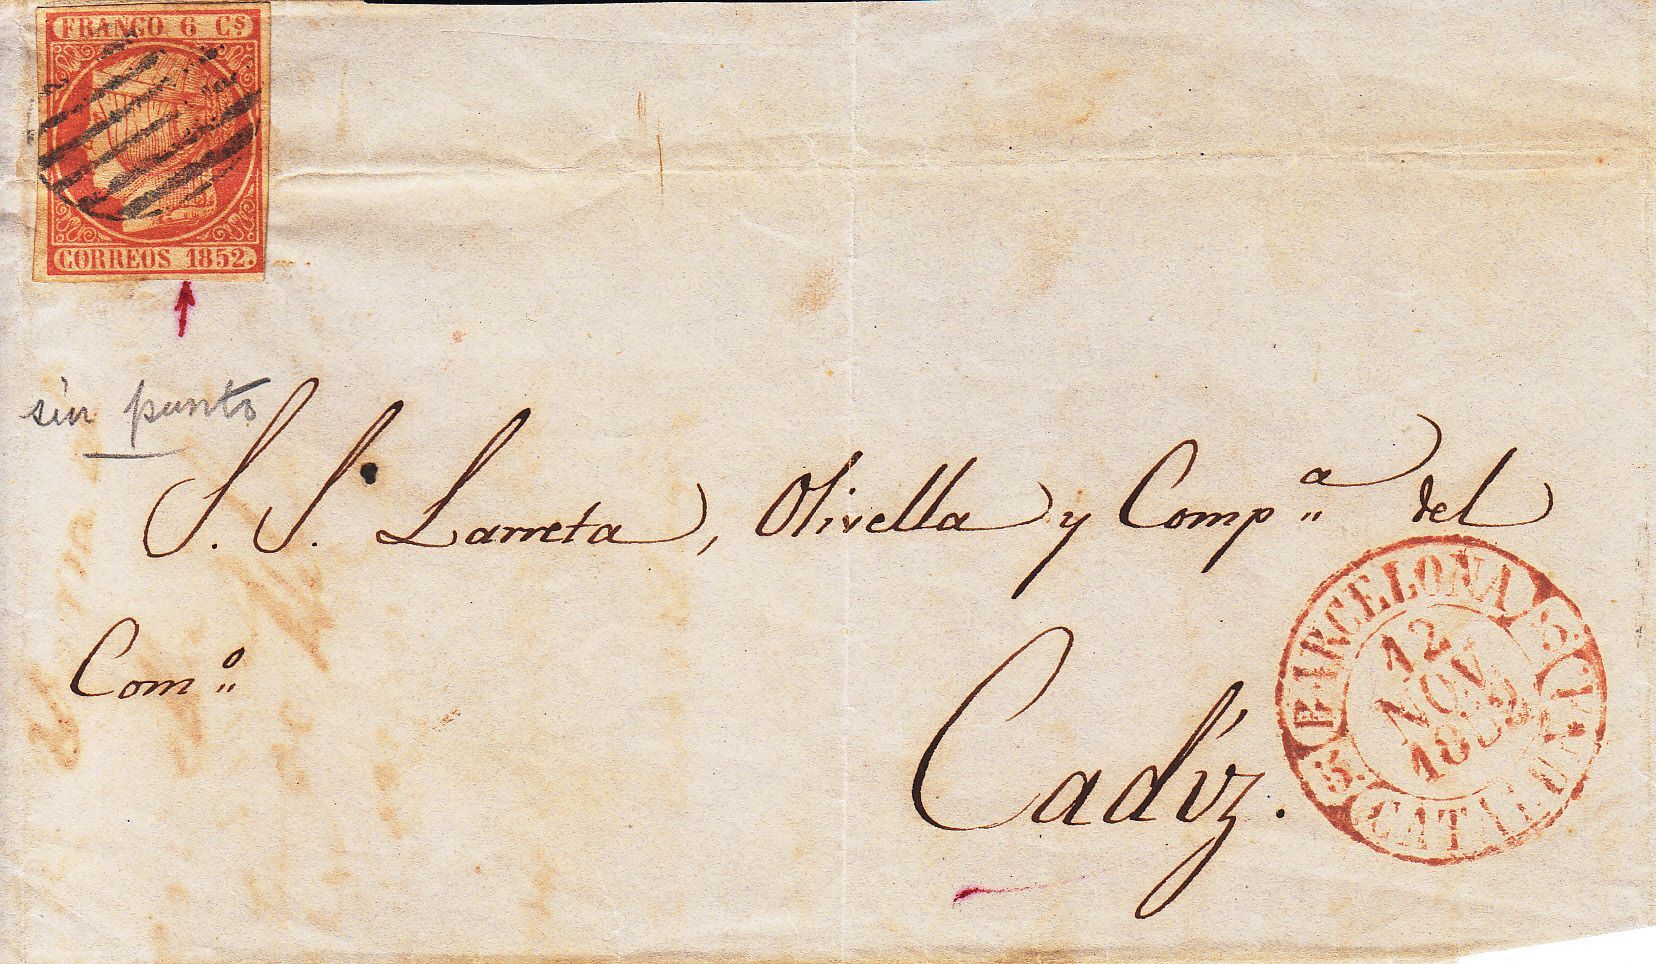 FRANCO 6 Cs
CORREOS 1852.
sin punto
S. S. Larreta, Olivella y Compª del
Comº
Cadiz.
BARCELONA
12
NOV
1852
CATALUÑA